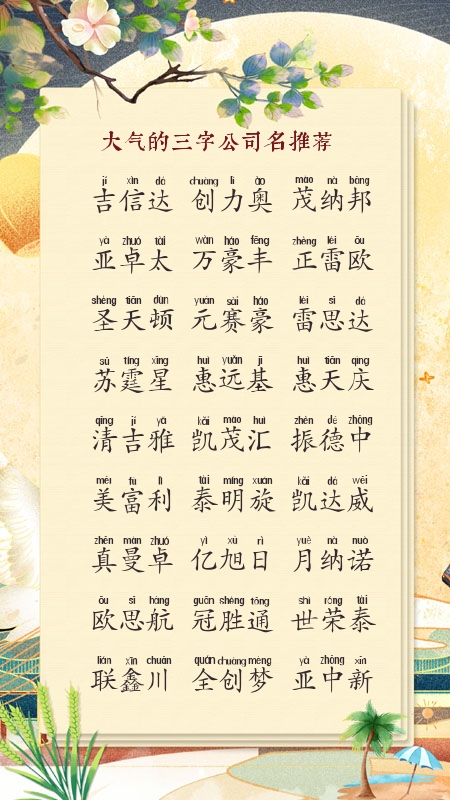 大气的三字公司名推荐
jí xìn dá chuàng lì ào mào nà bāng
吉信达 创力奥 茂纳邦
yà zhuó tài wàn háo fēng zhèng léi ōu
亚卓太 万豪丰 正雷欧
shèng tiān dùn yuán sài háo léi sī dá
圣天顿 元赛豪 雷思达
sū tíng xīng huì yuǎn jī huì tiān qìng
苏霆星 惠远基 惠天庆
qīng jí yǎ kǎi mào huì zhèn dé zhōng
清吉雅 凯茂汇 振德中
měi fù lì tài míng xuán kǎi dá wēi
美富利 泰明旋 凯达威
zhēn màn zhuó yì xù rì yuè nà nuò
真曼卓 亿旭日 月纳诺
ōu sī háng guān shèng tōng shì róng tài
欧思航 冠胜通 世荣泰
lián xīn chuān quán chuàng mèng yà zhōng xīn
联鑫川 全创梦 亚中新